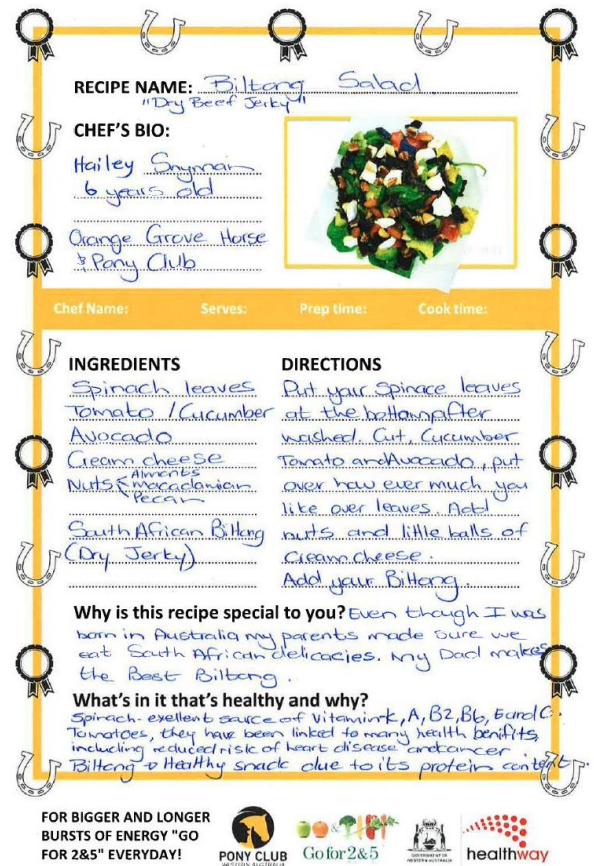 RECIPE NAME: Biltong Salad
"Dry Beef Jerky"
CHEF'S BIO:
Hailey Snyman
6 years old
Orange Grove Horse
& Pony Club
Chef Name: Serves: Prep time: Cook time:
INGREDIENTS
Spinach leaves
Tomato / Cucumber
Avocado
Cream cheese
Nuts Almonts
macadamian
Pecan
South African Biltong
(Dry Jerky)
DIRECTIONS
Put your Spinace leaves
at the bottom after
washed. Cut, Cucumber
Tomato and Avocado, put
over how ever much you
like over leaves. Add
nuts and little balls of
Cream cheese.
Add your Biltong.
Why is this recipe special to you? Even though I was
born in Australia my parents made sure we
eat South African delicacies. My Dad makes
the Best Biltong.
What's in it that's healthy and why?
Spinach - exellent source of Vitamin k, A, B2, B6, E and C.
Tomatoes, they have been linked to many health benifits,
including reduced risk of heart disease and cancer
Biltong Healthy snack due to its protein content.
FOR BIGGER AND LONGER
BURSTS OF ENERGY "GO
FOR 2&5" EVERYDAY!
PONY CLUB
WESTERN AUSTRALIA
Go for 2&5
GOVERNMENT OF
WESTERN AUSTRALIA
healthway